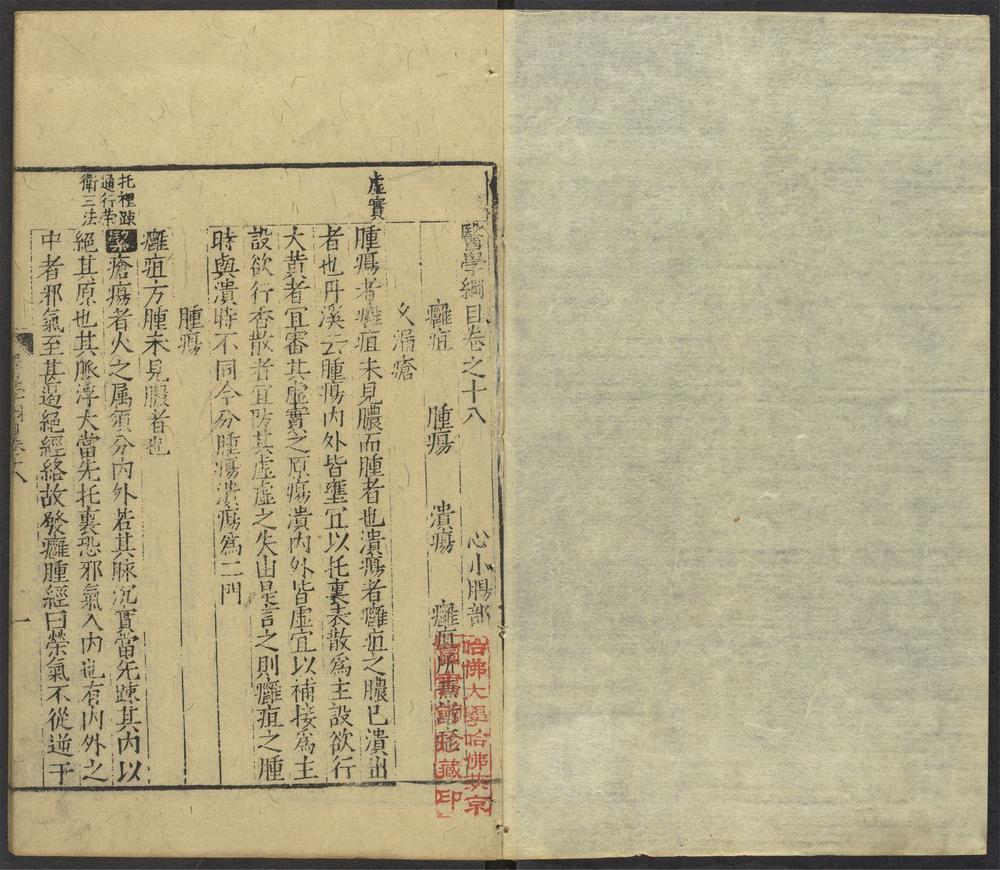 醫學綱目卷之十八　心小腸部
癰疽　腫瘍　潰瘍　癰疽所兼諸疹
久漏瘡
虛實
腫瘍者癰疽未見膿而腫者也潰瘍者癰疽之膿已潰出
者也丹溪云腫瘍內外皆壅宜以托裏表散爲主設欲行
大黃者宜審其虛實之原瘍潰內外皆虛宜以補接爲主
設欲行香散者宜防其虛虛之失由是言之則癰疽之腫
時與潰時不同今分腫瘍潰瘍爲二門
腫瘍
癰疽方腫未見膿者也
托裡踈
通行荣
衛三法
潔瘡瘍者火之属須分內外若其脉沉實當先踈其內以
絕其原也其脈浮大當先托裏恐邪氣入內也有內外之
中者邪氣至甚遏絕經絡故發癰腫經曰榮氣不從逆于
一
哈佛大學哈佛燕京
圖書館珍藏印